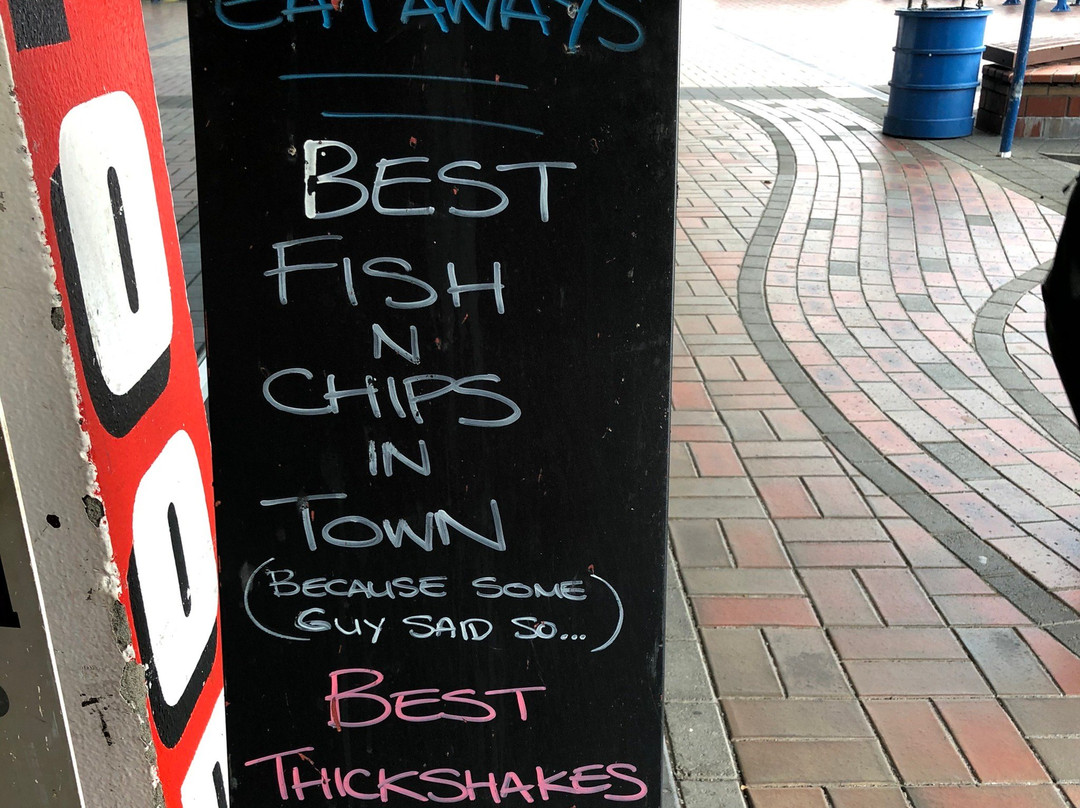 EATAWAYS
BEST
FISH
N
CHIPS
IN
TOWN
(BECAUSE SOME
GUY SAID SO...)
BEST
THICKSHAKES
OO